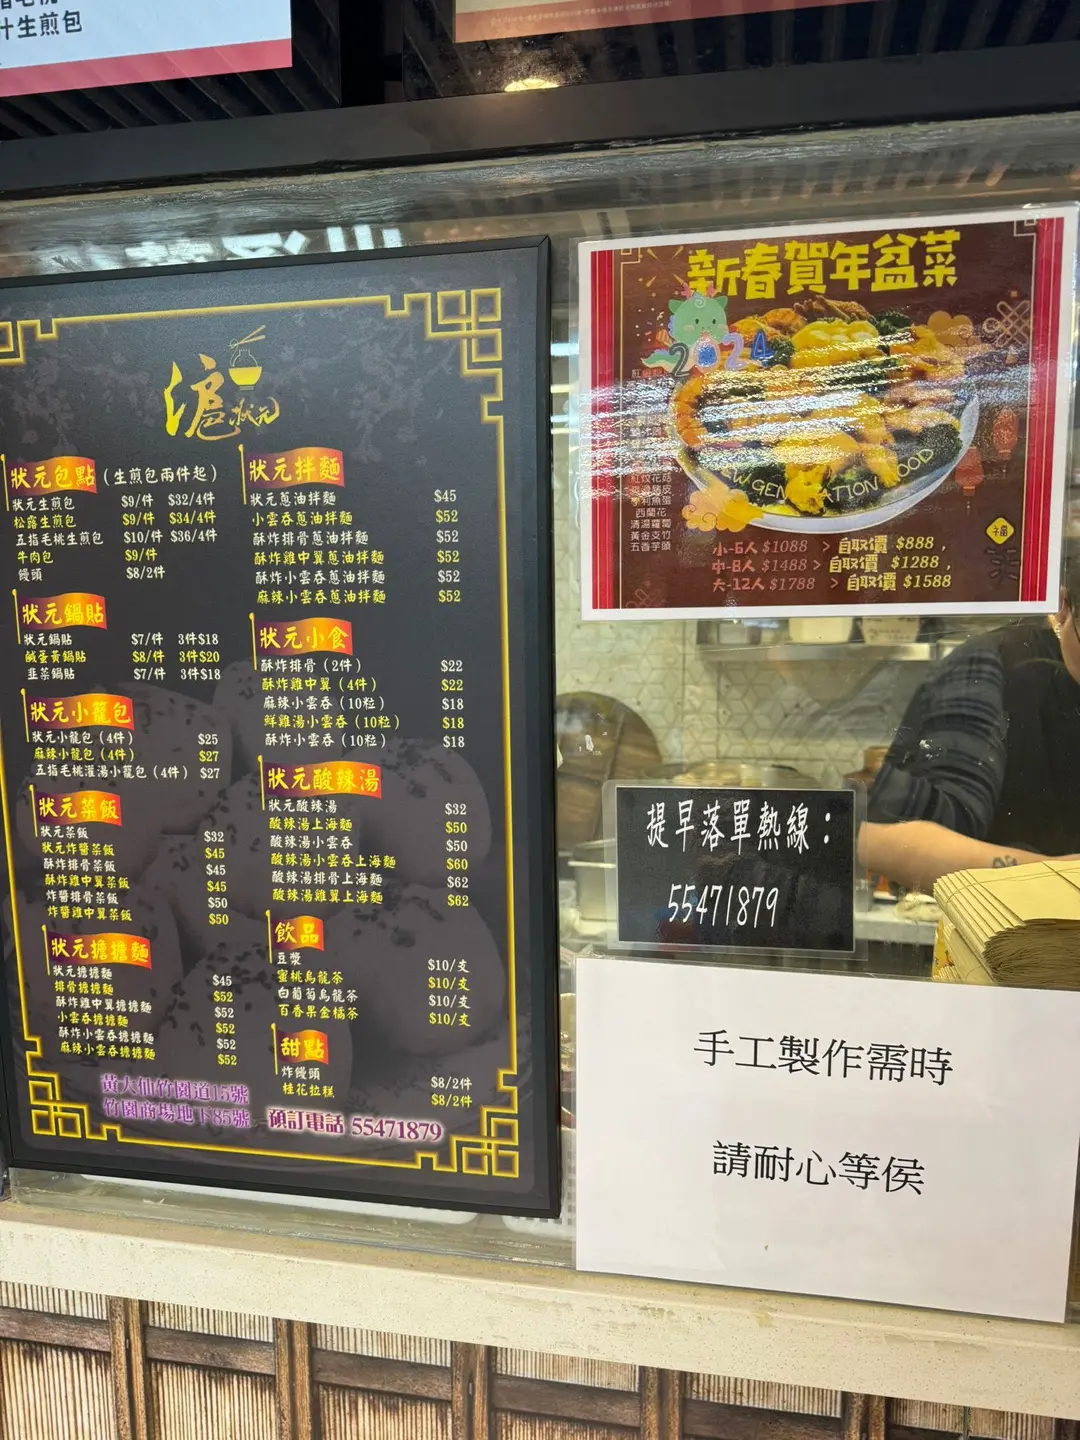 汁生煎包
滬狀元
狀元包點 (生煎包兩件起)
狀元生煎包 $9/件 $32/4件
松露生煎包 $9/件 $34/4件
五指毛桃生煎包 $10/件 $36/4件
牛肉包 $9/件
饅頭 $8/2件
狀元鍋貼
狀元鍋貼 $7/件 3件$18
鹹蛋黃鍋貼 $8/件 3件$20
韭菜鍋貼 $7/件 3件$18
狀元小籠包
狀元小籠包 (4件) $25
麻辣小籠包 (4件) $27
五指毛桃灌湯小籠包 (4件) $27
狀元菜飯
狀元菜飯 $32
狀元炸醬菜飯 $45
酥炸排骨菜飯 $45
酥炸雞中翼菜飯 $45
炸醬排骨菜飯 $50
炸醬雞中翼菜飯 $50
狀元擔擔麵
狀元擔擔麵 $45
排骨擔擔麵 $52
酥炸雞中翼擔擔麵 $52
小雲吞擔擔麵 $52
酥炸小雲吞擔擔麵 $52
麻辣小雲吞擔擔麵 $52
狀元拌麵
狀元蔥油拌麵 $45
小雲吞蔥油拌麵 $52
酥炸排骨蔥油拌麵 $52
酥炸雞中翼蔥油拌麵 $52
酥炸小雲吞蔥油拌麵 $52
麻辣小雲吞蔥油拌麵 $52
狀元小食
酥炸排骨 (2件) $22
酥炸雞中翼 (4件) $22
麻辣小雲吞 (10粒) $18
鮮雞湯小雲吞 (10粒) $18
酥炸小雲吞 (10粒) $18
狀元酸辣湯
狀元酸辣湯 $32
酸辣湯上海麵 $50
酸辣湯小雲吞 $50
酸辣湯小雲吞上海麵 $60
酸辣湯排骨上海麵 $62
酸辣湯雞翼上海麵 $62
飲品
豆漿 $10/支
蜜桃烏龍茶 $10/支
白葡萄烏龍茶 $10/支
百香果金橘茶 $10/支
甜點
炸饅頭 $8/2件
桂花拉糕 $8/2件
黃大仙竹園道15號
竹園商場地下85號 預訂電話 55471879
新春賀年盆菜
2024
紅炆花菇
西蘭花
清湯蘿蔔
黃金支竹
五香芋頭
NEW GENERATION FOOD
福
小-6人 $1088 > 自取價 $888,
中-8人 $1488 > 自取價 $1288,
大-12人 $1788 > 自取價 $1588
提早落單熱線：
55471879
手工製作需時
請耐心等侯